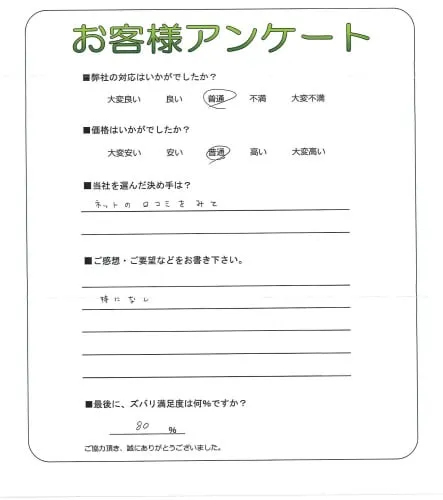 お客様アンケート
■弊社の対応はいかがでしたか？
大変良い 良い 普通 不満 大変不満
■価格はいかがでしたか？
大変安い 安い 普通 高い 大変高い
■当社を選んだ決め手は？
ネットの口コミをみて
■ご感想・ご要望などをお書き下さい。
特になし
■最後に、ズバリ満足度は何％ですか？
80 ％
ご協力頂き、誠にありがとうございました。